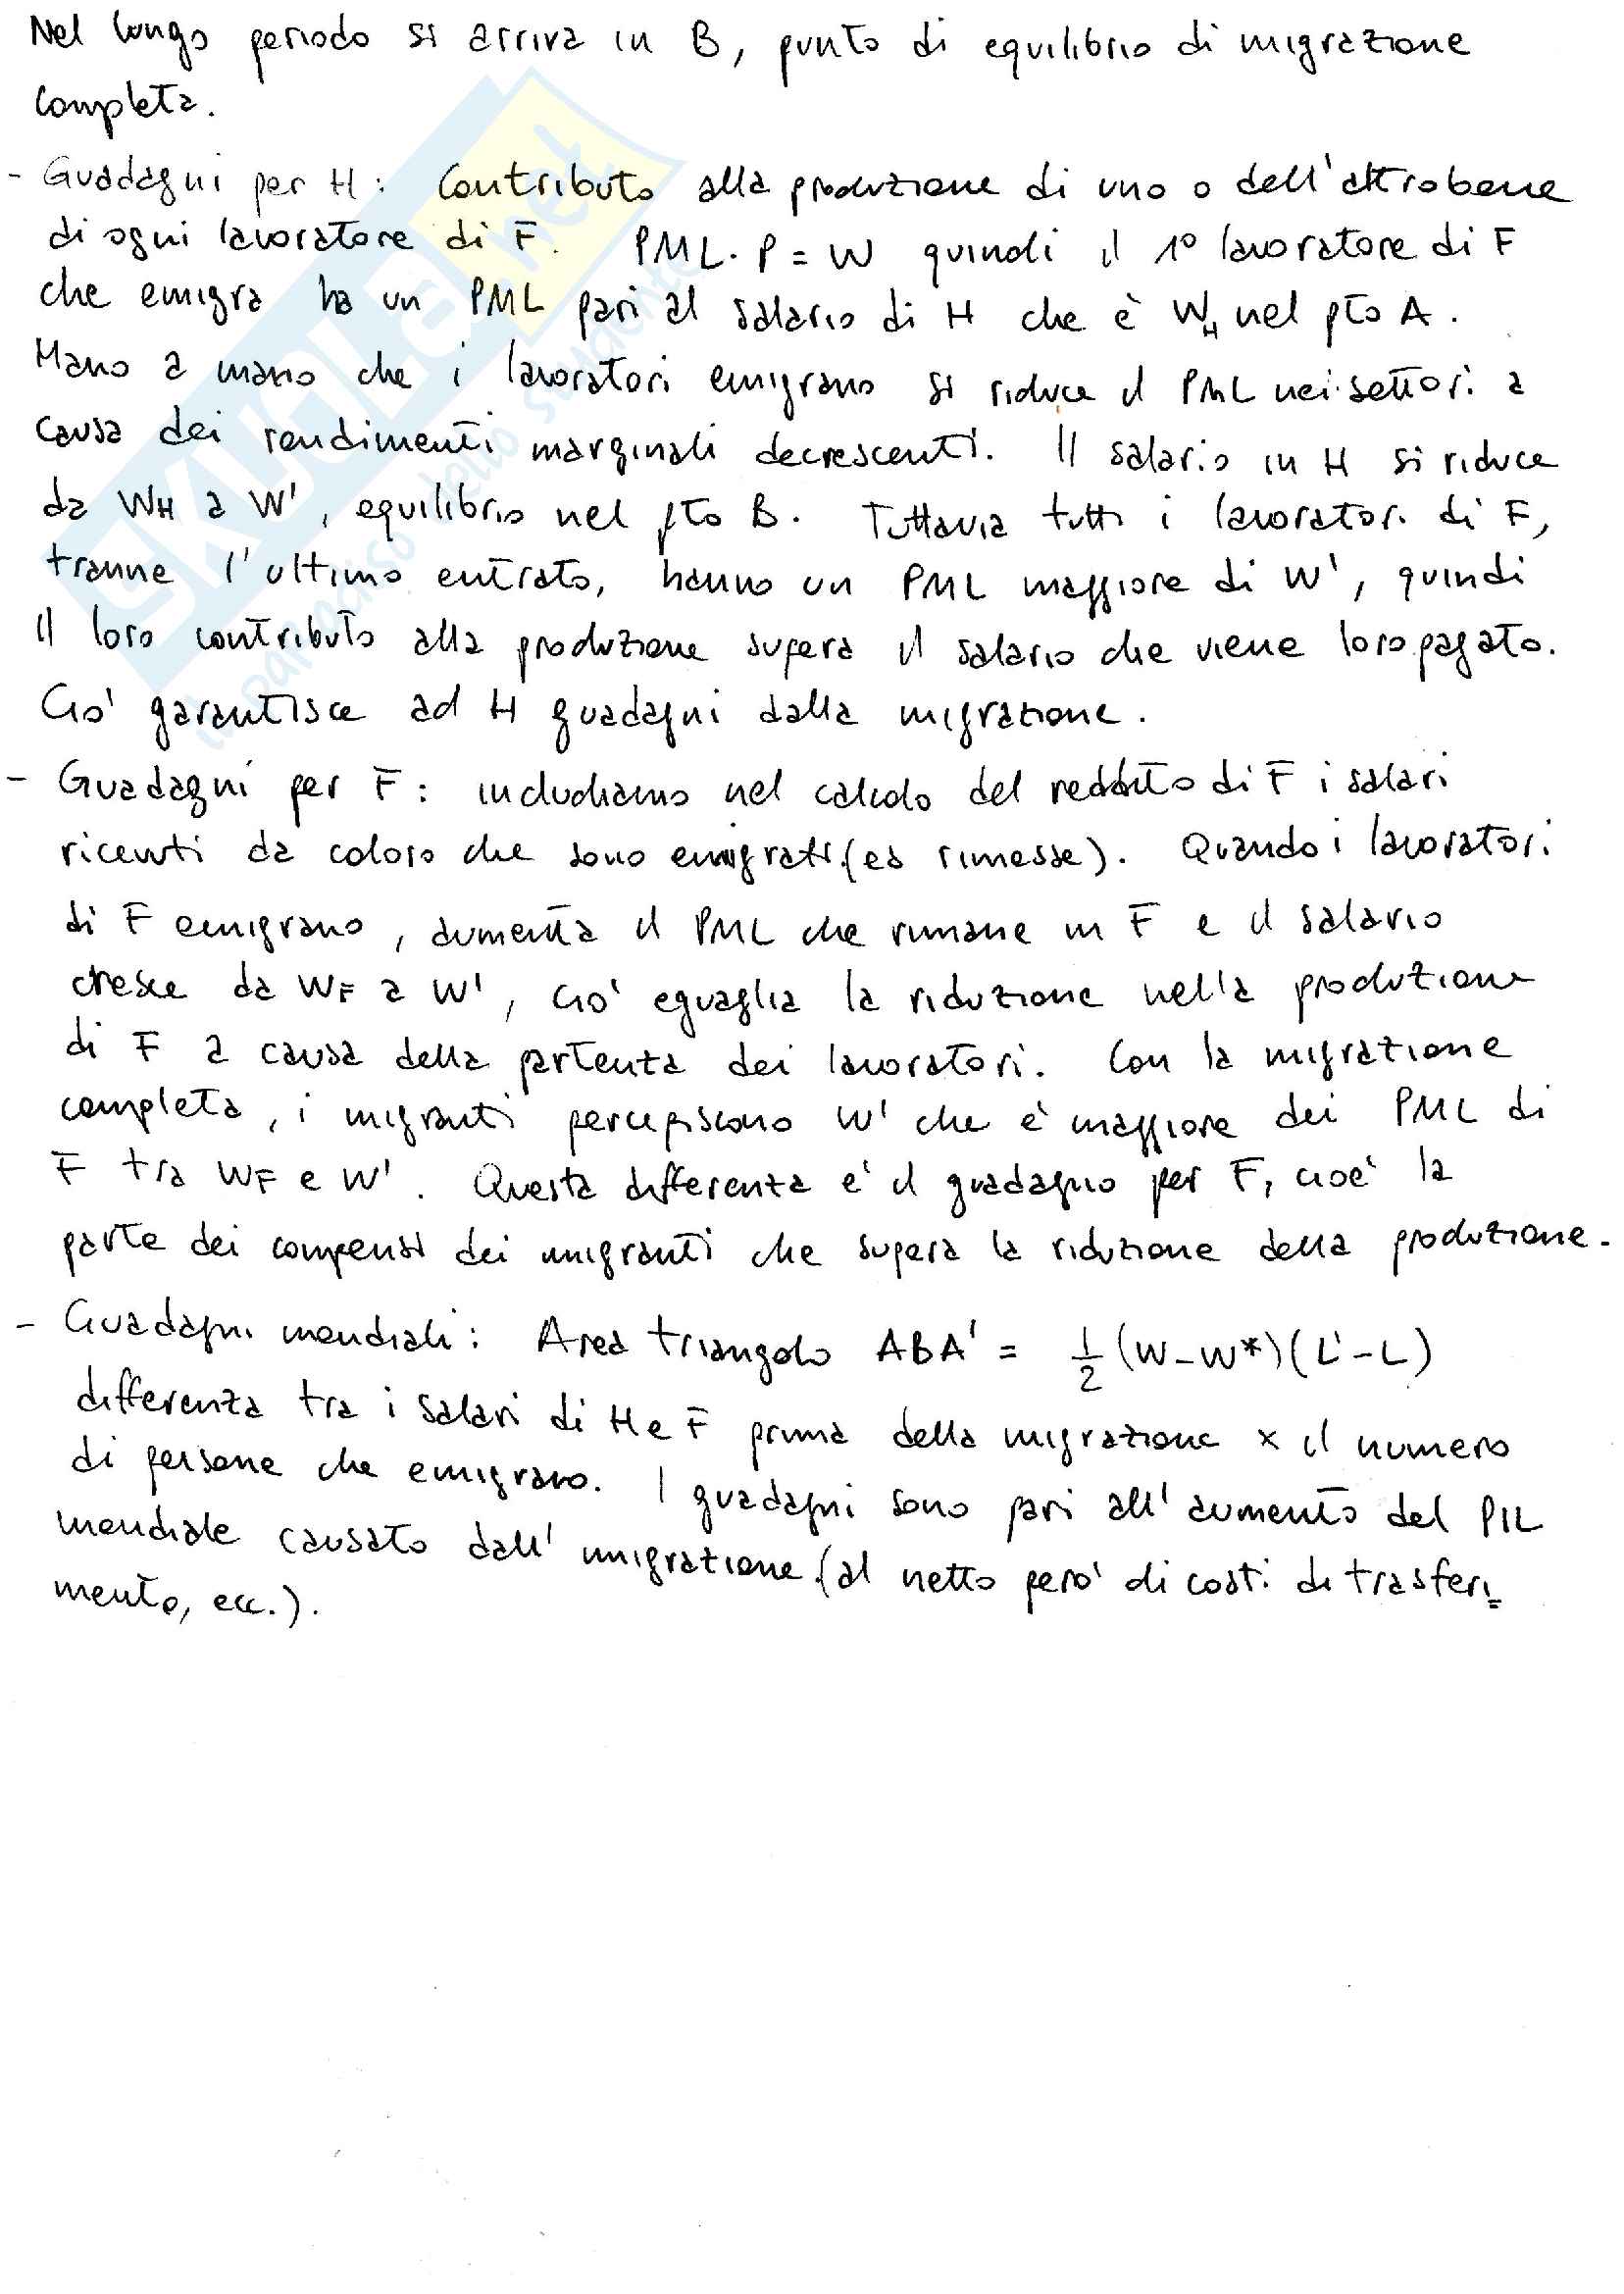 Nel lungo periodo si arriva in B, punto di equilibrio di migrazione
completa.
- Guadagni per H: Contributo alla produzione di uno o dell'altro bene
di ogni lavoratore di F. PML·P = W quindi il 1° lavoratore di F
che emigra ha un PML pari al salario di H che è WH nel pto A.
Mano a mano che i lavoratori emigrano si riduce il PML nei settori a
causa dei rendimenti marginali decrescenti. Il salario in H si riduce
da WH a W', equilibrio nel pto B. Tuttavia tutti i lavoratori di F,
tranne l'ultimo entrato, hanno un PML maggiore di W', quindi
il loro contributo alla produzione supera il salario che viene loro pagato.
Ciò garantisce ad H guadagni dalla migrazione.
- Guadagni per F: includiamo nel calcolo del reddito di F i salari
ricevuti da coloro che sono emigrati (es rimesse). Quando i lavoratori
di F emigrano, aumenta il PML che rimane in F e il salario
cresce da WF a W', ciò eguaglia la riduzione nella produzione
di F a causa della partenza dei lavoratori. Con la migrazione
completa, i migranti percepiscono W' che è maggiore dei PML di
F tra WF e W'. Questa differenza è il guadagno per F, cioè la
parte dei compensi dei migranti che supera la riduzione della produzione.
- Guadagni mondiali: Area triangolo ABA' = 1/2 (W-W*)(L'-L)
differenza tra i salari di H e F prima della migrazione x il numero
di persone che emigrano. I guadagni sono pari all'aumento del PIL
mondiale causato dall'immigrazione (al netto però di costi di trasferi=
mento, ecc.).
SKUOLA.net
il paradiso dello studente